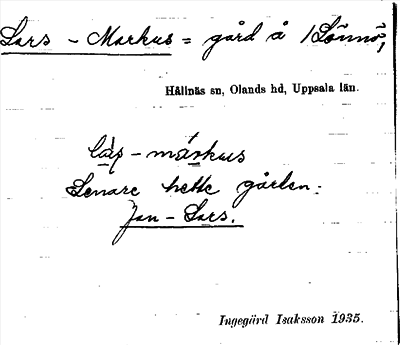 Lars - Markus = gård å Lönnö,
Hållnäs sn, Olands hd, Uppsala län.
láṣ - márkus
Senare hette gården:
Jan - Lars.
Ingegärd Isaksson 1935.